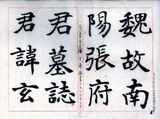 魏故南
陽張府
君墓誌
君諱玄